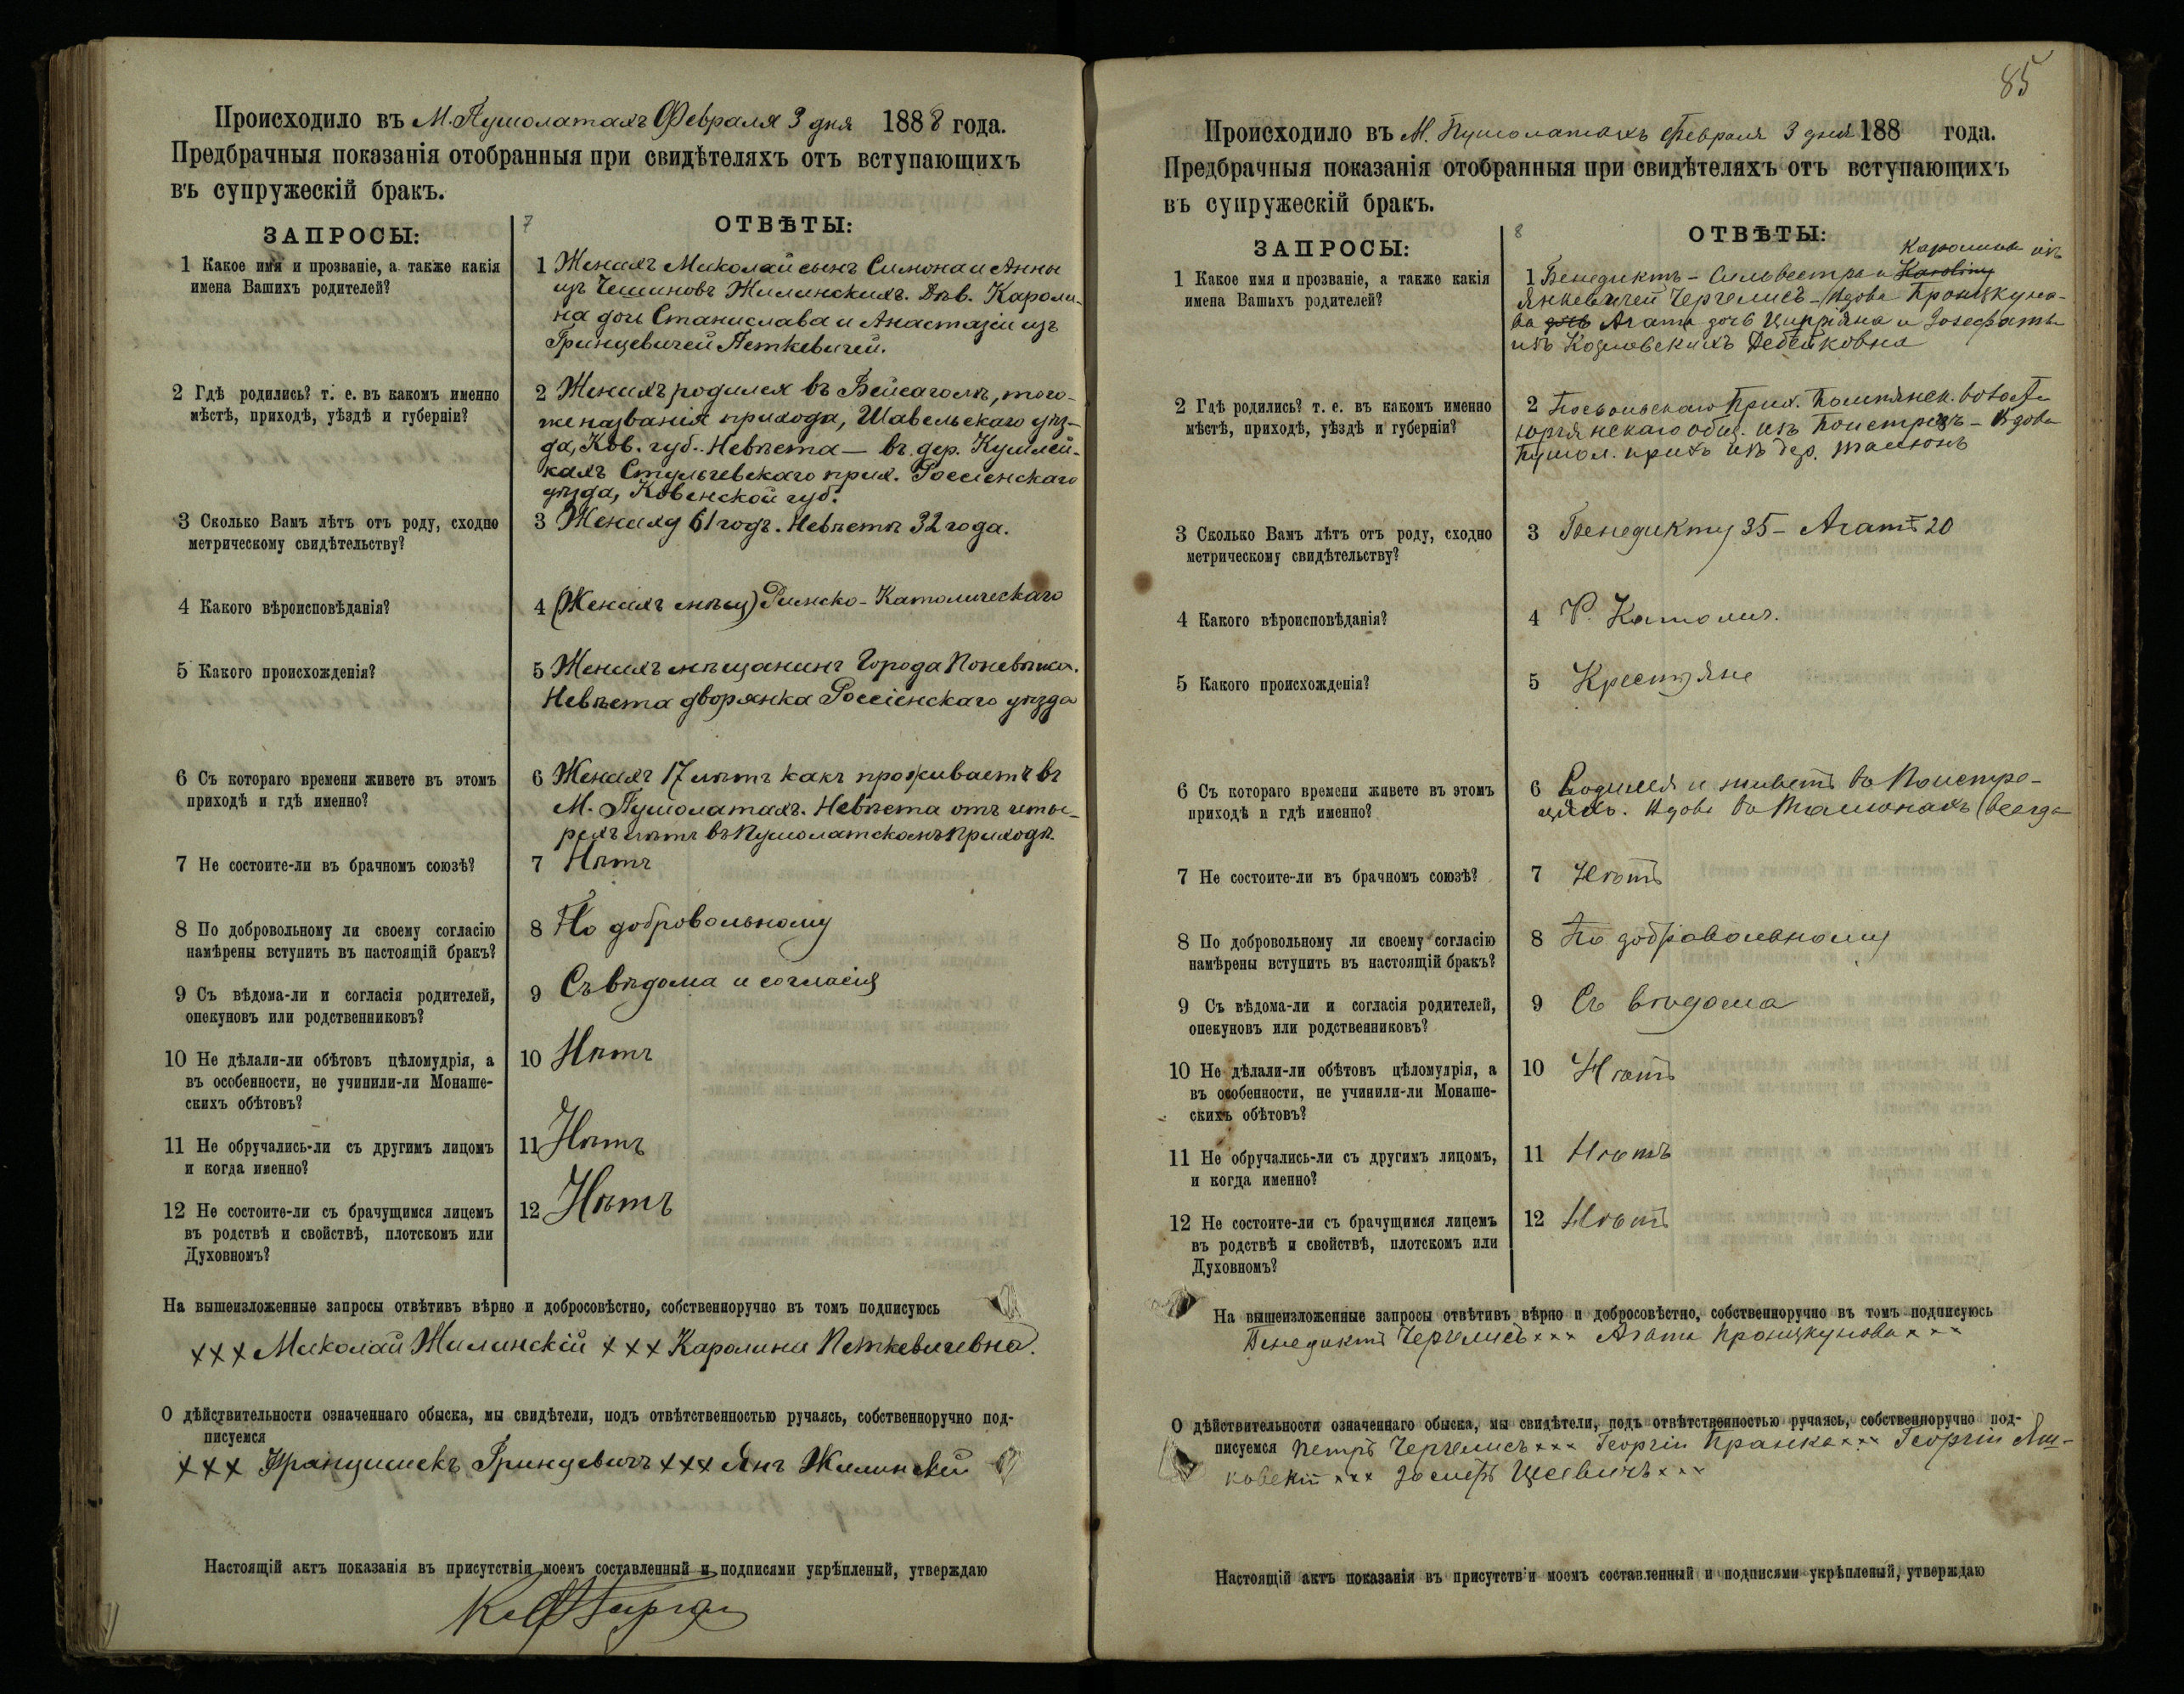 Происходило въ М. Пушолатахъ Февраля 3 дня 1888 года.
Предбрачныя показанія отобранныя при свидѣтеляхъ отъ вступающихъ
въ супружескій бракъ.
7
ЗАПРОСЫ:
ОТВѢТЫ:
1 Какое имя и прозваніе, а также какія
имена Вашихъ родителей?
1 Женихъ Миколай сынъ Симона и Анны
изъ Чешиновъ Жилинскихъ. Дѣв. Кароли-
на дочь Станислава и Анастазіи изъ
Гринцевичей Петкевичей.
2 Гдѣ родились? т. е. въ какомъ именно
мѣстѣ, приходѣ, уѣздѣ и губерніи?
2 Женихъ родился въ Бейсаголѣ, того-
же названія прихода, Шавельскаго уѣз-
да, Ков. губ. Невѣста — въ дер. Кушлей-
кахъ Стульгевскаго прих. Россіенскаго
уѣзда, Ковенской губ.
3 Сколько Вамъ лѣтъ отъ роду, сходно
метрическому свидѣтельству?
3 Жениху 61 годъ. Невѣстѣ 32 года.
4 Какого вѣроисповѣданія?
4 (Женихъ мѣщ) Римско-Католическаго
5 Какого происхожденія?
5 Женихъ мѣщанинъ Города Поневѣжа.
Невѣста дворянка Россіенскаго уѣзда
6 Съ котораго времени живете въ этомъ
приходѣ и гдѣ именно?
6 Женихъ 17 лѣтъ какъ проживаетъ въ
М. Пушолатахъ. Невѣста отъ четы-
рехъ лѣтъ въ Пушолатскомъ приходѣ.
7 Не состоите-ли въ брачномъ союзѣ?
7 Нѣтъ
8 По добровольному ли своему согласію
намѣрены вступить въ настоящій бракъ?
8 По добровольному
9 Съ вѣдома-ли и согласія родителей,
опекуновъ или родственниковъ?
9 Съ вѣдома и согласія
10 Не дѣлали-ли обѣтовъ цѣломудрія, а
въ особенности, не учинили-ли Монаше-
скихъ обѣтовъ?
10 Нѣтъ
11 Не обручались-ли съ другимъ лицомъ
и когда именно?
11 Нѣтъ
12 Не состоите-ли съ брачущимся лицемъ
въ родствѣ и свойствѣ, плотскомъ или
Духовномъ?
12 Нѣтъ
На вышеизложенные запросы отвѣтивъ вѣрно и добросовѣстно, собственноручно въ томъ подписуюсь
××× Миколай Жилинскій ××× Каролина Петкевичевна.
О дѣйствительности означеннаго обыска, мы свидѣтели, подъ отвѣтственностью ручаясь, собственноручно под-
писуемся
××× Францишекъ Гринцевичъ ××× Янъ Жилинскій
Настоящій актъ показанія въ присутствіи моемъ составленный и подписями укрѣпленый, утверждаю
85
Происходило въ М. Пушолатахъ Февраля 3 дня 188 года.
Предбрачныя показанія отобранныя при свидѣтеляхъ отъ вступающихъ
въ супружескій бракъ.
8
ЗАПРОСЫ:
ОТВѢТЫ:
1 Какое имя и прозваніе, а также какія
имена Вашихъ родителей?
Каролины изъ
1 Бенедиктъ - Сильвестра и Karoliny
Янкевичей Чергелисъ - Вдова Пронцкуно-
ва дочь Агата дочь Ципріяна и Іозефаты
изъ Козловскихъ Дебейковна
2 Гдѣ родились? т. е. въ какомъ именно
мѣстѣ, приходѣ, уѣздѣ и губерніи?
2 Посвольскаго прих. волости
общ. изъ - Вдова
Пушол. прихъ изъ дер.
3 Сколько Вамъ лѣтъ отъ роду, сходно
метрическому свидѣтельству?
3 Бенедикту 35 - Агатѣ 20
4 Какого вѣроисповѣданія?
4 Р. Католич.
5 Какого происхожденія?
5 Крестьяне
6 Съ котораго времени живете въ этомъ
приходѣ и гдѣ именно?
6 Родился и живетъ въ Поистре-
цяхъ. Вдова въ (всегда
7 Не состоите-ли въ брачномъ союзѣ?
7 Нѣтъ
8 По добровольному ли своему согласію
намѣрены вступить въ настоящій бракъ?
8 По добравольному
9 Съ вѣдома-ли и согласія родителей,
опекуновъ или родственниковъ?
9 Съ вѣдома
10 Не дѣлали-ли обѣтовъ цѣломудрія, а
въ особенности, не учинили-ли Монаше-
скихъ обѣтовъ?
10 Нѣтъ
11 Не обручались-ли съ другимъ лицомъ,
и когда именно?
11 Нѣтъ
12 Не состоите-ли съ брачущимся лицемъ
въ родствѣ и свойствѣ, плотскомъ или
Духовномъ?
12 Нѣтъ
На вышеизложенные запросы отвѣтивъ вѣрно и добросовѣстно, собственноручно въ томъ подписуюсь
Бенедиктъ Чергелисъ ××× Агата Пронцкунова ×××
О дѣйствительности означеннаго обыска, мы свидѣтели, подъ отвѣтственностью ручаясь, собственноручно под-
писуемся Петръ Чергелисъ ××× Георгій Пранка ××× Георгій Яш-
ковскій ××× ×××
Настоящій актъ показанія въ присутствіи моемъ составленный и подписями укрѣпленый, утверждаю